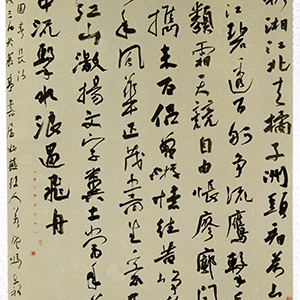 秋湘江北去橘子洲頭看萬山
江碧透百舸爭流鷹擊
類霜天競自由悵寥廓問
攜來百侶曾遊憶往昔崢
年風華正茂書生意
江山激揚文字糞土當年
中流擊水浪遏飛舟
園春長沙